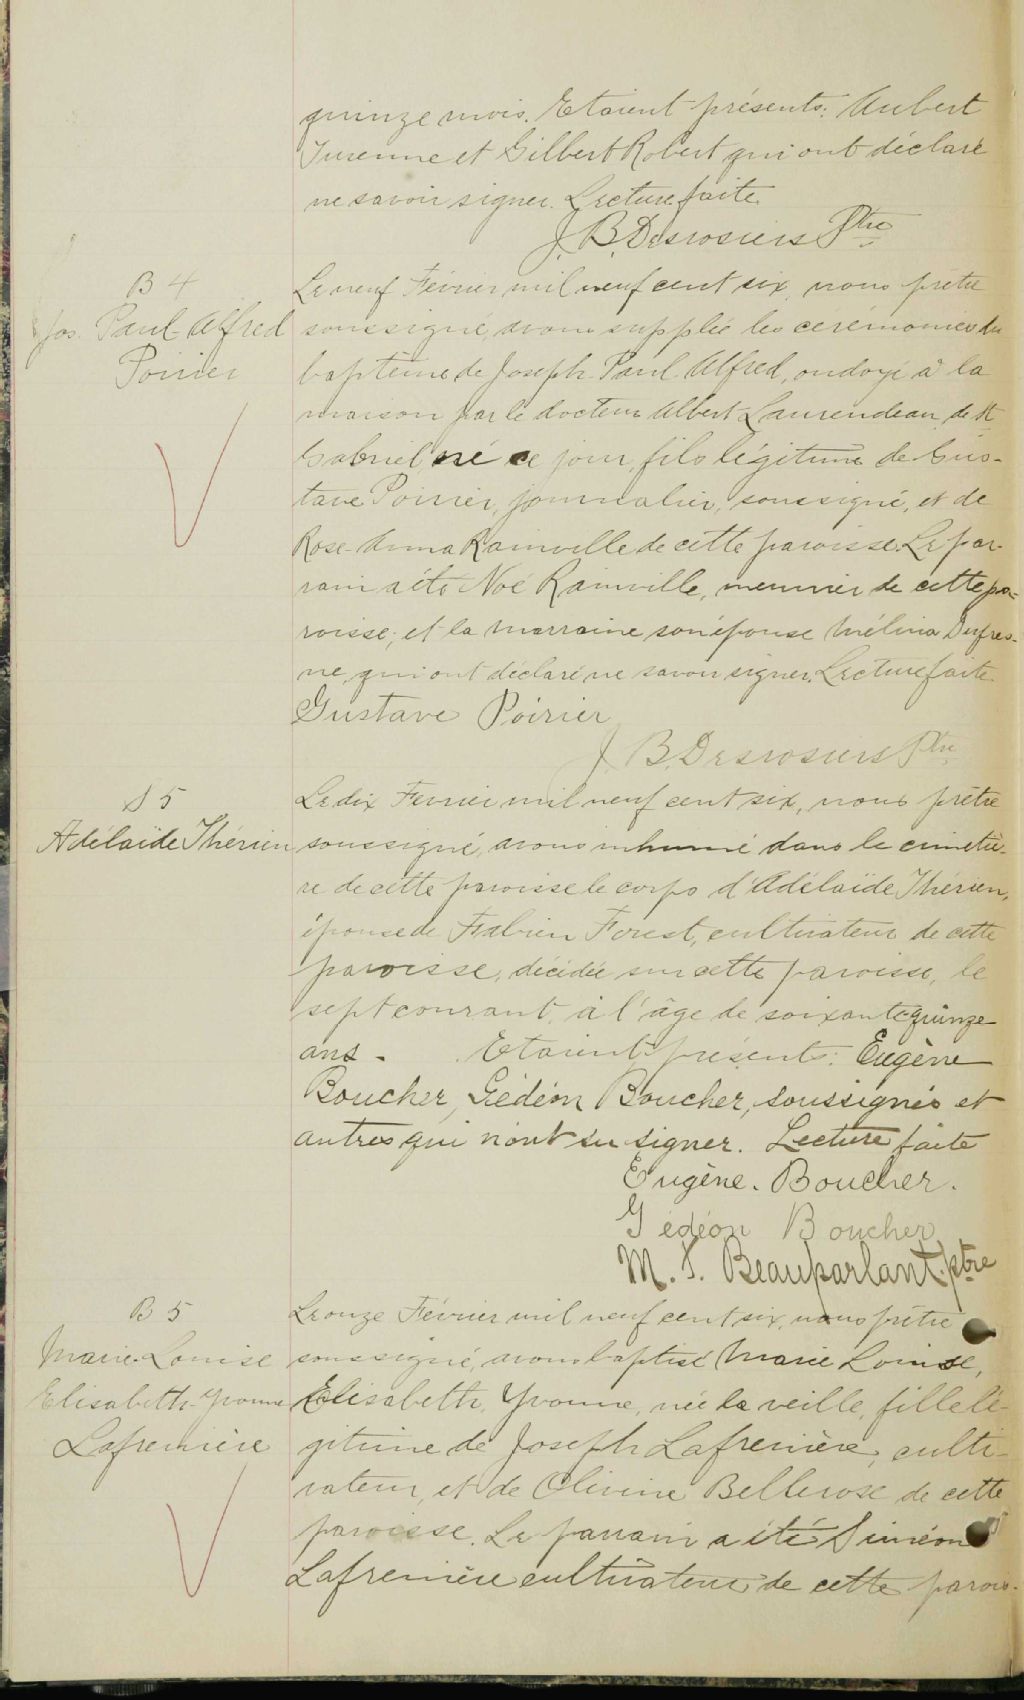 quinze mois. Etaient présents: Aubert
Turenne et Gilbert Robert qui ont déclaré
ne savoir signer. Lecture faite.
J. B. Desrosiers Ptre
B 4
Jos. Paul Alfred
Poirier
Le neuf Février mil neuf cent six, nous prêtre
soussigné, avons supplée les cérémonies du
baptême de Joseph Paul Alfred, ondoyé à la
maison par le docteur Albert Laurendeau de St
Gabriel, né ce jour, fils légitime de Gus-
tave Poirier, journalier, soussigné, et de
Rose-Anna Rainville de cette paroisse. Le par-
rain a été Noé Rainville, meunier de cette pa-
roisse, et la marraine son épouse Mélina Dufres-
ne, qui ont déclaré ne savoir signer. Lecture faite.
Gustave Poirier
J. B. Desrosiers Ptre
S 5
Adélaïde Thérien
Le dix Février mil neuf cent six, nous prêtre
soussigné, avons inhumé dans le cimetiè-
re de cette paroisse le corps d'Adélaïde Thérien,
épouse de Fabien Forest, cultivateur de cette
paroisse, décédée sur cette paroisse, le
sept courant, à l'âge de soixante-quinze
ans. Etaient présents: Eugène
Boucher, Gédéon Boucher, soussignés et
autres qui n'ont su signer. Lecture faite
Eugène. Boucher.
Gédéon Boucher
M. J. Beauparlant. ptre
B 5
Marie-Louise
Elisabeth-Yvonne
Lafrenière
Le onze Février mil neuf cent six, nous prêtre
soussigné, avons baptisé Marie Louise,
Elisabeth, Yvonne, née la veille, fille lé-
gitime de Joseph Lafrenière, culti-
vateur, et de Olivine Bellerose de cette
paroisse. Le parrain a été Siméon
Lafrenière cultivateur de cette parois-